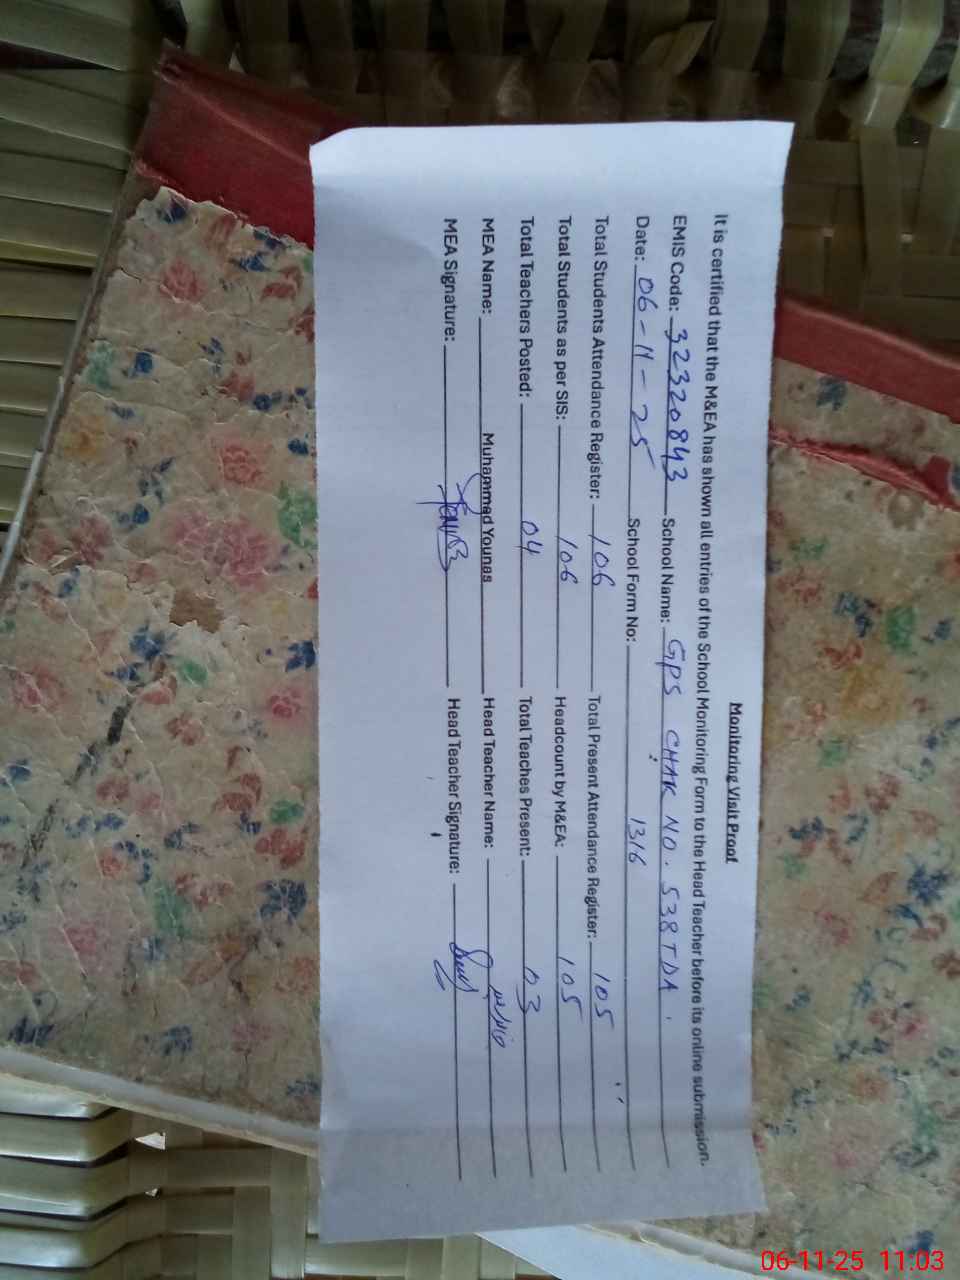 Monitoring Visit Proof
It is certified that the M&EA has shown all entries of the School Monitoring Form to the Head Teacher before its online submission.
EMIS Code: 32320843 School Name: GPS CHAK NO. 538TDA.
Date: 06-11-25 School Form No: 1316
Total Students Attendance Register: 106 Total Present Attendance Register: 105
Total Students as per SIS: 106 Headcount by M&EA: 105
Total Teachers Posted: 04 Total Teaches Present: 03
MEA Name: Muhammad Younas Head Teacher Name:
MEA Signature: Head Teacher Signature:
06-11-25 11:03